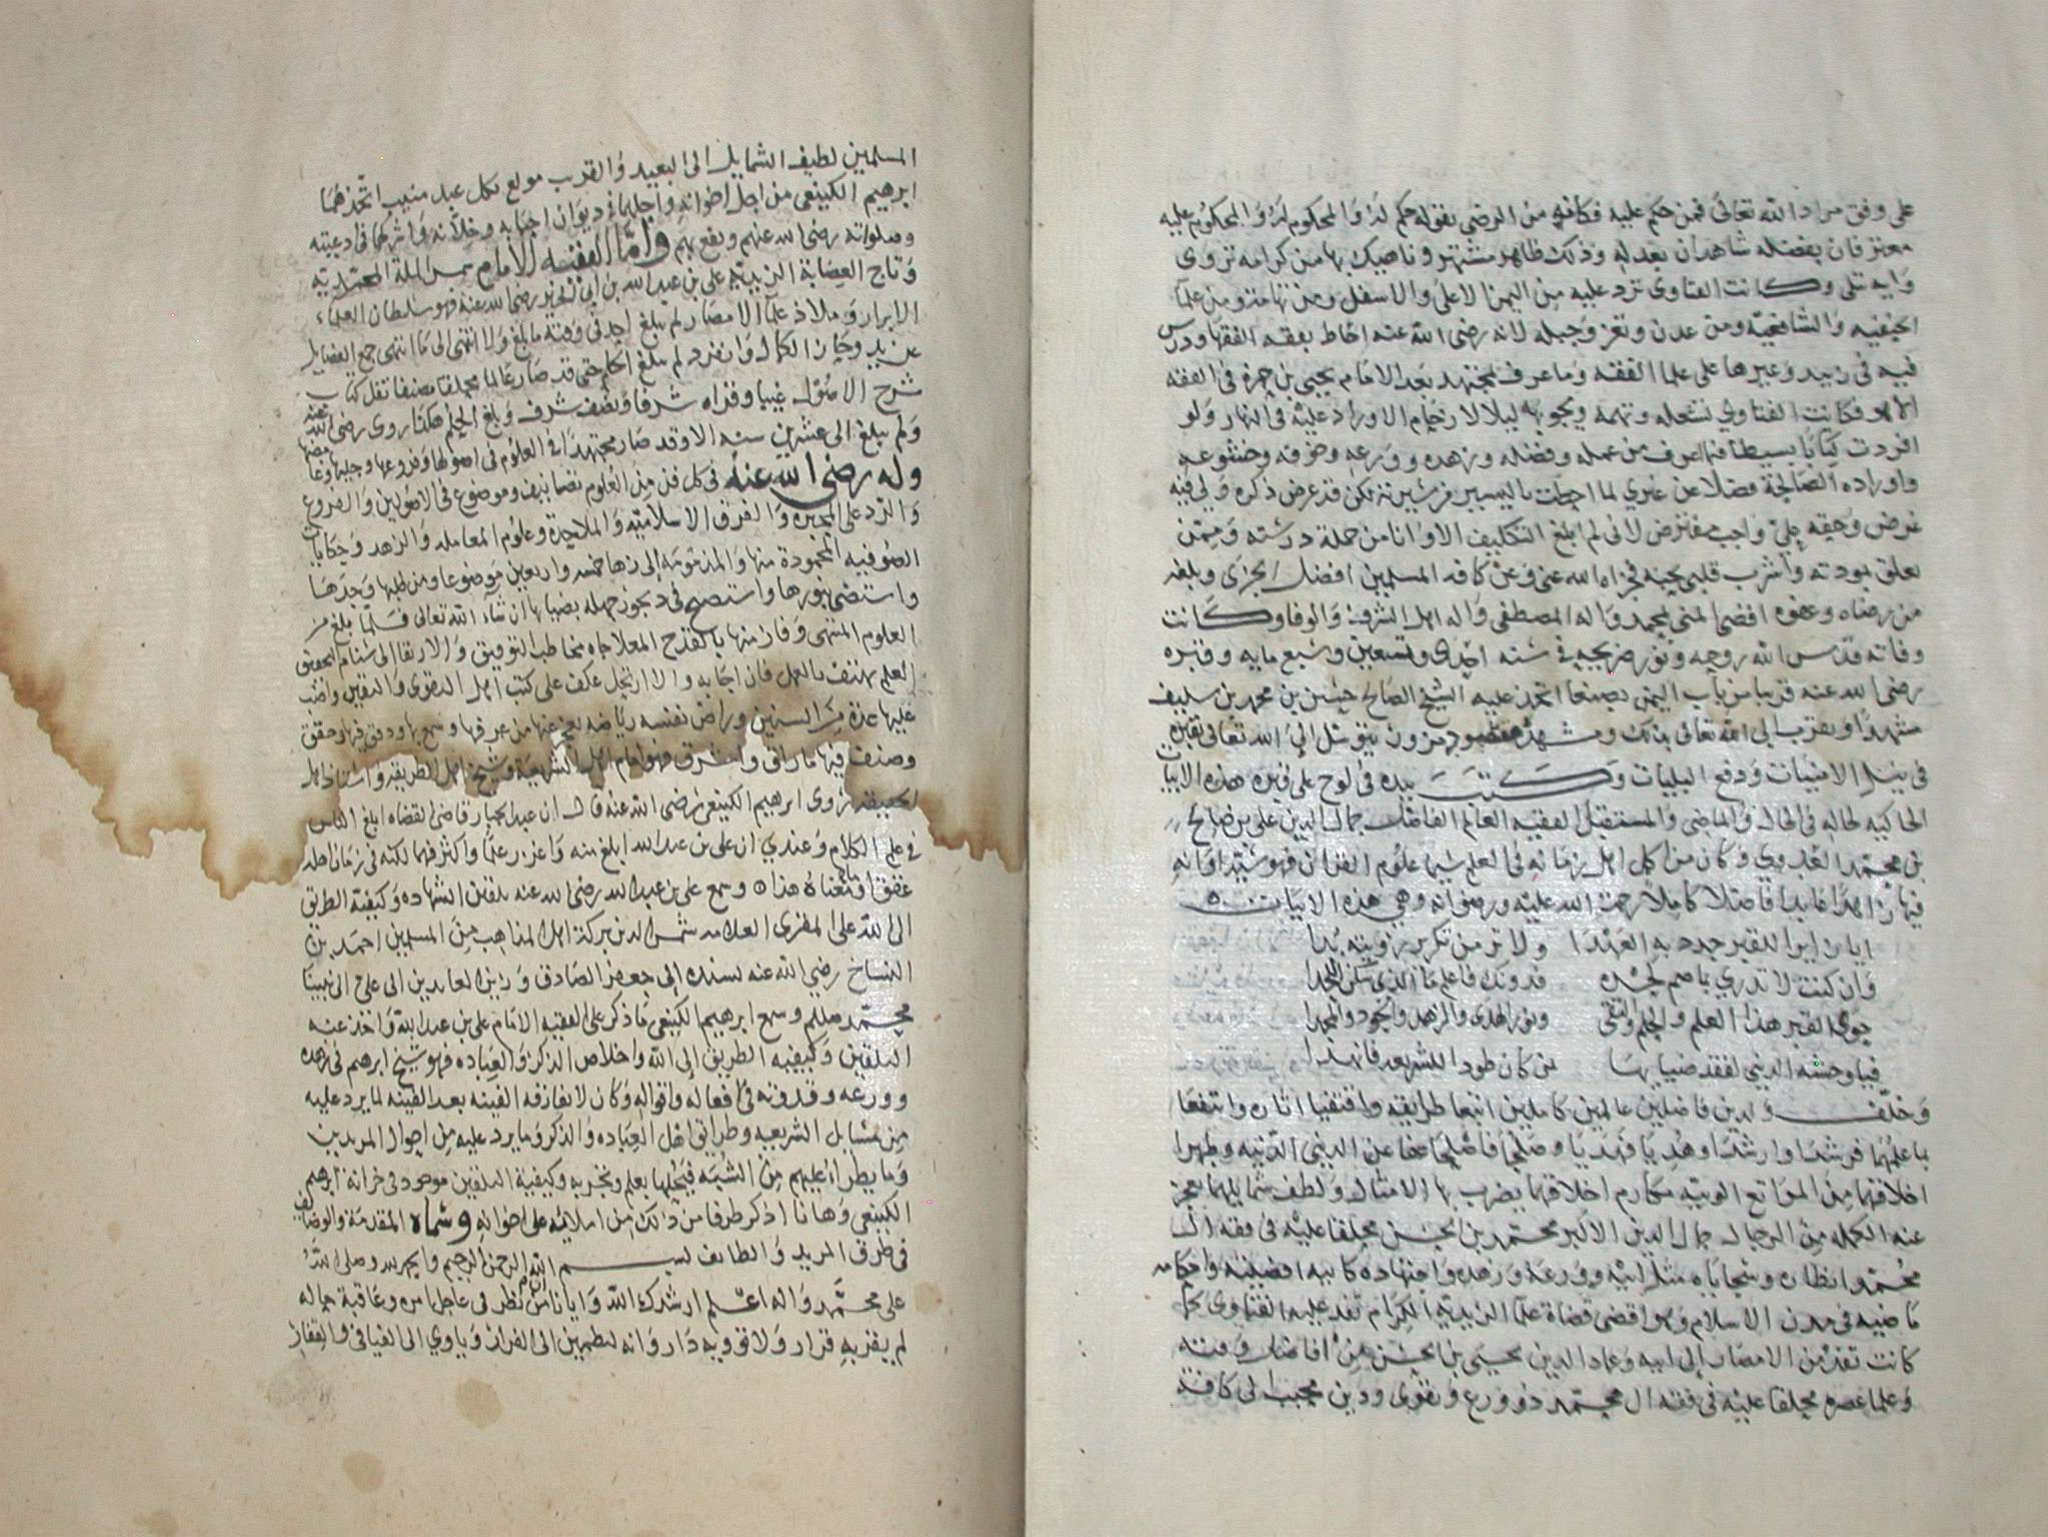 على وفق مراد الله تعالى فمن حكم عليه فكانه من الرضى بقوله حكم له والمحكوم له والمحكوم عليه
معترفان بفضله شاهدان بعدله وذلك ظاهر مشتهر وناهيك بها من كرامه تروى
واية تتلى وكانت الفتاوى ترد عليه من اليمن الاعلى والاسفل ومن تهامة ومن علما
الحنفيه والشافعيه ومن عدن وتعز وجبله لانه رضى الله عنه احاط بفقه الفقها ودرس
فيه فى زبيد وغيرها على علما الفقه وما عرف مجتهد بعد الامام يحيى بن حمزة فى الفقه
الا هو فكانت الفتاوي تشغله وتهمه ويجوبها ليلا لازدحام الاوراد عليه فى النهار ولو
افردت كتابا بسيطا فيما اعرف من عمله وفضله وزهده وورعه وخوفه وخشوعه
واوراده الصالحة فضلا عن غيري لما احطت باليسير من سيرته لكن قد عرض ذكره ولى فيه
غرض وحقه علي واجب مفترض لانى لم ابلغ التكليف الا وانا من جملة درسته وممن
تعلق بمودته واشرب قلبي بحبه فجزاه الله عنى وعن كافه المسلمين افضل الجزى وبلغه
من رضاه وعفوه اقصى المنى بمحمد واله المصطفى واله اهل الشرف والوفا وكانت
وفاته قدس الله روحه ونور ضريحه في سنه احدى وتسعين وسبع مايه وقبره
رضى الله عنه قريبا من باب اليمن بصنعا اتخذ عليه الشيخ الصالح حسن بن محمد بن سليف
مشهدا وتقرب الى الله تعالى بذلك ومشهده مقصود مزور يتوسل الى الله تعالى بقبره
فى نيل الامنيات ودفع البليات وكتب بيده فى لوح على قبره هذه الابيات
الحاكيه لحاله فى الحال والماضى والمستقبل الفقيه العالم الفاضل جمال الدين على بن صالح
بن محمد العدوي وكان من اكمل اهل زمانه فى العلم سيما علوم القران فهو سيد اوانه
فيها زاهدا عابدا فاضلا كاملا رحمت الله عليه ورضوانه وهي هذه الابيات
ايا زايرا للقبر جدد به العهدا ولا تر من تكرير رؤيته بدا
وان كنت لا تدري باصم لحده فدونك فاعلم ما الذى سكن اللحدا
حوى القبر هذا العلم والحلم والتقى ونور الهدى والزهد والجود والمجدا
فيا وحشه الدنيى لفقد ضيابها لمن كان طودا للشريعه فانهدا
وخلف ولدين فاضلين عالمين كاملين اتبعا طرايقه واقتفيا اثاره وانتفعا
باعلمهما فرشدا وارشدا وهديا فهديا وصلحا فاصلحا عفا عن الدنيى الدنيه وظهرا
اخلاقهما من المراتع الوبيه مكارم اخلاقهما يضرب بها الامثال ولطف شمايلهما يعجز
عنه الكمله من الرجال جمال الدين الاكبر محمد بن الحسن محلقا عليه فى فقه ال
محمد وانظاره وسجاياه مثل ابيه وورعه وزهده واجتهاده كابيه اقضيته واحكامه
ماضيه فى مدن الاسلام وهو اقضى قضاة علما الزيدية الكرام تفد عليه الفتاوى كما
كانت تفد من الامصار الى ابيه وعماد الدين يحيى بن الحسن من افاضل وقته
وعلما عصره محلقا عليه فى فقه ال محمد ذو ورع وتقوى ودين محبب الى كافة
المسلمين لطيف الشمايل الى البعيد والقرب مولع بكل عبد منيب اتخذهما
ابرهيم الكينعى من اجل اخوانه واجلهما فى ديوان احبابه وخلانه واشركهما فى ادعيته
وصلواته رضى الله عنهم ونفع بهم واما الفقيه الامام شمس الملة المحمدية
وتاج العصابة الزيدية على بن عبد الله بن ابى الخير رضى الله عنه فهو سلطان العلماء
الابرار وملاذ علما الامصار لم يبلغ احد فى وقته ما بلغ ولا انتهى الى ما انتهى جمع الفضايل
عن يد وحاز الكمال وانفرد لم يبلغ الحلم حتى قد صار عالما محلقا مصنفا نقل كتاب
شرح الاصول غيبا وقراه شرفا ونصف شرف وبلغ الحلم هكذا روى رضى الله عنه
ولم يبلغ الى عشرين سنه الا وقد صار مجتهدا فى العلوم فى اصولها وفروعها وجليها وغامضها
وله رضى الله عنه فى كل فن من العلوم تصانيف وموضوع فى الاصولين والفروع
والرد على المجبره والفرق الاسلاميه والملاحدة وعلوم المعامله والزهد وحكايات
الصوفيه المحمودة منها والمذمومه الى زها خمسه واربعين موضوعا ومن طلبها وجدها
واستضى بنورها واستصبح فى ديجور جهله بضيائها ان شاء الله تعالى فلما بلغ من
العلوم المنتهى وفاز منها بالقدح المعلا جاه مخاطب التوفيق والارتقا الى سنام التحقيق
العلم يهتف بالعمل فان اجابه والا ارتحل عكف على كتب اهل التقوى واليقين واكب
عليها عدة من السنين وراض نفسه رياضه يعجز عنها من عرفها وسمع بها ودقق فيها وحقق
وصنف فيها ما راق واشرق فهو امام اهل الشريعة وشيخ اهل الطريقه واستاذ اهل
الحقيقه روى ابرهيم الكينعى رضى الله عنه قال ان عبد الجبار قاضى القضاه ابلغ الناس
في علم الكلام وعندي ان على بن عبد الله ابلغ منه واغزر علما واكثر فهما لكنه فى زمان اهله
غفق ما معناه هذا وسمع على بن عبد الله رضى الله عنه تلقين الشهاده وكيفية الطريق
الى الله على المقرى العلامه شمس الدين بركة اهل المذاهب من المسلمين احمد بن
النساخ رضي الله عنه بسنده الى جعفر الصادق وزين العابدين الى علي الى نبينا
محمد صللم وسمع ابرهيم الكينعى ما ذكر على الفقيه الامام على بن عبد الله واخذ عنه
التلقين وكيفيه الطريق الى الله واخلاص الذكر والعباده فهو شيخ ابرهيم فى زهده
وورعه وقدوته فى افعاله واقواله وكان لا يفارقه الفينه بعد الفينه لما يرد عليه
من مسايل الشريعه وطرايق اهل العباده والذكر وما يرد عليه من احوال المريدين
وما يطراء عليهم من الشبه فيحلها بعلم وتجربه وكيفية التلقين موجود فى خزانة ابرهيم
الكينعى وها نا اذكر طرفا من ذلك من املائه على اخوانه وسماه المقدمة والوضايف
فى طرق المريد والطايف بسم الله الرحمن الرحيم والحمد لله وصلى الله
على محمد واله اعلم ارشدك الله وايانا ان من نظر فى عاجل امره وعاقبة حاله
لم يقر به قرار ولا توويه دار وانه ليطمين الى الفرار وياوي الى الفيافى والقفار